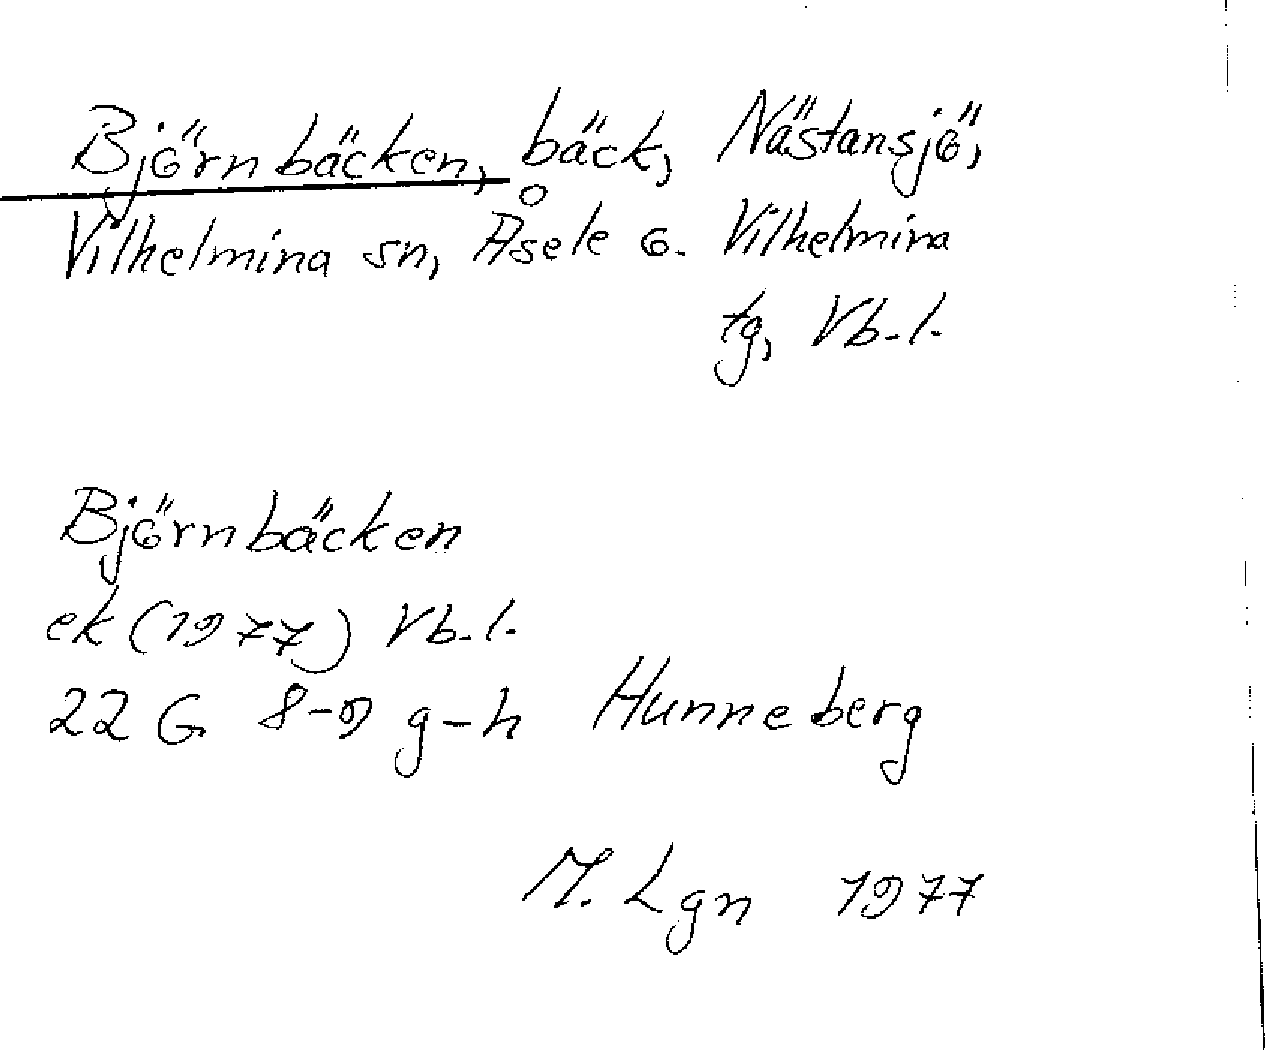 Björnbäcken, bäck, Nästansjö,
Vilhelmina sn, Åsele o. Vilhelmina
tg, Vb. l.
Björnbäcken
ek (1977) Vb. l.
22 G 8-9 g-h Hunneberg
M. Lgn 1977